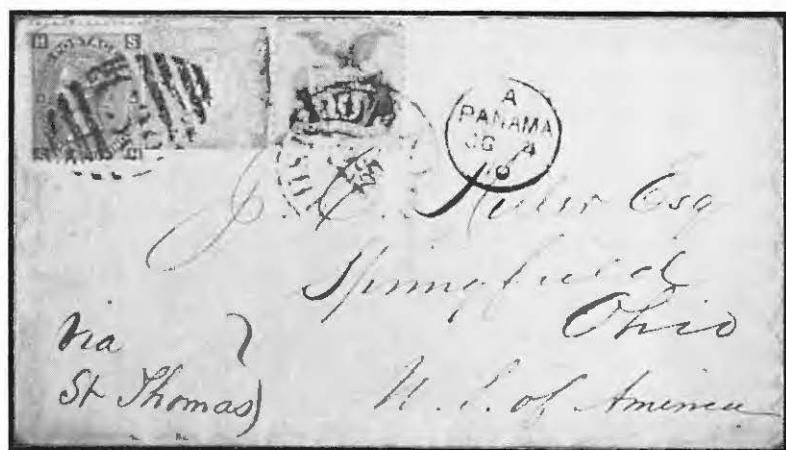 H S
POSTAGE
A
PANAMA
4
J. C. Miller Esq
Springfield
Ohio
U. S. of America
Via
St Thomas